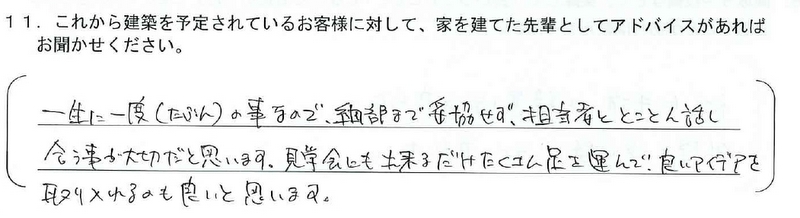 11．これから建築を予定されているお客様に対して、家を建てた先輩としてアドバイスがあれば
お聞かせください。
一生に一度（たぶん）の事なので、細部まで妥協せず、担当者ととことん話し
合う事が大切だと思います。見学会にも出来るだけたくさん足を運んで、良いアイデアを
取り入れるのも良いと思います。